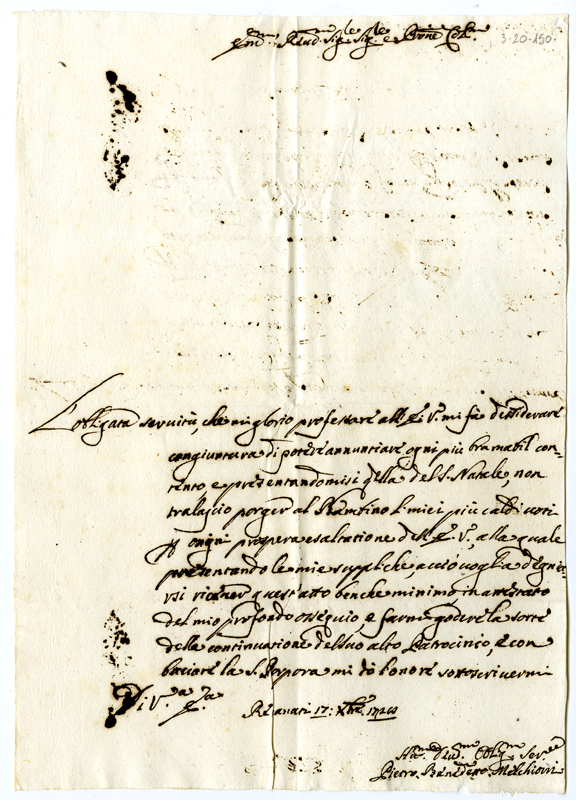 Em.mo Rev.mo Sig.re Sig.re e P.rone Col.mo
3-20-150
L'obligata servitù, che mi glorio professare all' E. V. mi fa desiderare
congiuntura di potere annunciare ogni più bramabil con-
tento e presentandomisi q.lla del S. Natale, non
tralascio porger al Bambino li miei più caldi voti
p ogni prospera esaltatione dell' E. V., alla quale
presentando le mie suppliche, acciò voglia degnar-
si ricever quest'atto benche minimo in attestato
del mio profondo ossequio, e farmi godere la sorte
della continuatione del suo alto Patrocinio, e con
baciare la S. Porpora mi dò l'honore sottoscrivermi
Di V.ra E.za
Recanati 17: Xbre
Hu.mo Dev.mo Obblig.mo Ser.re
Pietro Benedetto Melchiorri